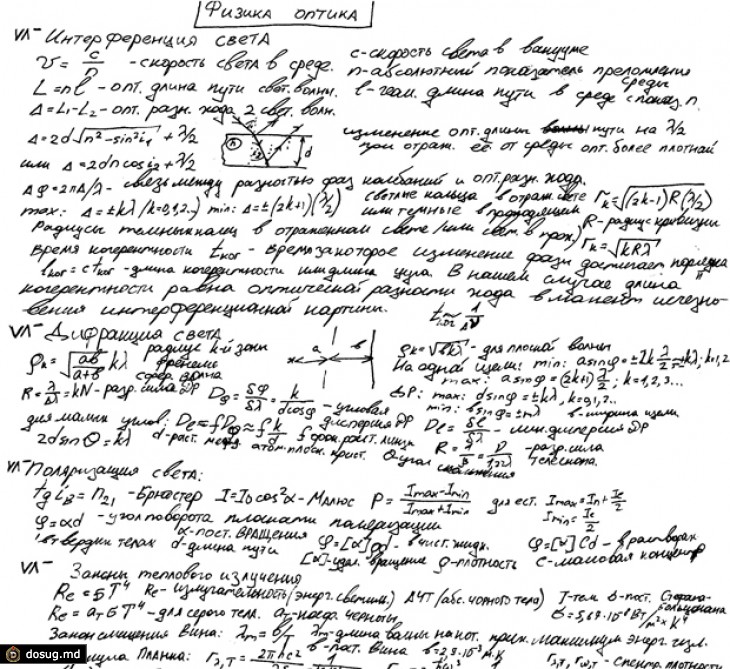 Физика оптика
Интерференция света
v = c/n - скорость света в среде. c - скорость света в вакууме
n - абсолютный показатель преломления среды
L = nl - опт. длина пути свет. волны. l - геом. длина пути в среде с показ. n.
Δ = L₁-L₂ - опт. разн. хода 2 свет. волн.
Δ = 2d√(n² - sin²i₁) + λ/2 изменение опт. длины пути на λ/2
или Δ = 2dn cos i₂ + λ/2 при отраж. её от среды опт. более плотной
Δφ = 2πΔ/λ - связь между разностью фаз колебаний и опт. разн. хода.
max: Δ = ±kλ /k=0,1,2..) min: Δ = ±(2k+1)(λ/2) светлые кольца в отраж. свете или темные в проходящем r̃k = √((2k-1)R(λ/2))
R - радиус кривизны
Радиусы темных колец в отраженном свете (или свет. в прох) rk = √(kRλ)
Время когерентности tког - время за которое изменение фазы достигает порядка π
lког = c tког - длина когерентности или длина цуга. В нашем случае длина
когерентности равна оптической разности хода в момент исчезно-
вения интерференционной картины. tког ≈ 1/Δν
Дифракция света
ρk = √(ab/(a+b) kλ) радиус k-й зоны Френеля сфер. волна
a b
ρk = √(bkλ) - для плоской волны
На одной щели: min: a sinφ = ±2k λ/2 = ±kλ; k=1,2
max: a sinφ = (2k+1) λ/2; k=1,2,3...
R = λ/Δλ = kN - разр. сила ДР Dφ = δφ/δλ = k/(d cosφ) - угловая дисперсия ДР
ДР: max: d sinφ = ±kλ, k=0,1,2..
min: b sinφ = ±mλ b - ширина щели.
для малых углов: Dl = fDφ ≈ f k/d f фок. раст. линзы Dl = δl/δλ - лин. дисперсия ДР
2d sinΘ = kλ d - раст. межд. атом. плоск. крист. Θ угол скольжения
R = 1/β = D/1,22λ - разр. сила телескопа.
Поляризация света:
tg iB = n₂₁ - Брюстер I = I₀cos²α - Малюс P = (Imax - Imin)/(Imax + Imin) для ест. Imax = Iп + Iе/2
Imin = Iе/2
φ = αd - угол поворота плоскости поляризации
в твердых телах α - пост. вращения d - длина пути φ = [α]ρd - в чист. жидк. φ = [α]Cd - в растворах
[α] - удел. вращение ρ - плотность C - массовая концентр
Законы теплового излучения
Re = σT⁴ Re - излучательность (энерг. светим.) АЧТ (абс. чорного тела) T - тем σ - пост. Стефана-Больцмана
Re = aтσT⁴ - для серого тела. aт - коэф. черноты σ = 5,67·10⁻⁸ Вт/м²×К⁴
Закон смещения Вина: λm = b/T λm - длина волны на кот. прих. максимум энерг. изл.
b - пост. Вина b = 2,9·10⁻³ м·К
Планка: rλ,T = 2πhc²
dosug.md